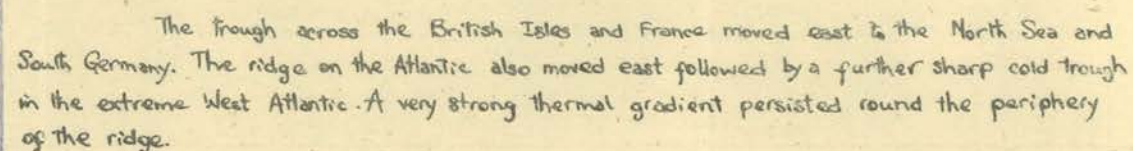 The trough across the British Isles and France moved east to the North Sea and
South Germany. The ridge on the Atlantic also moved east followed by a further sharp cold trough
in the extreme West Atlantic. A very strong thermal gradient persisted round the periphery
of the ridge.